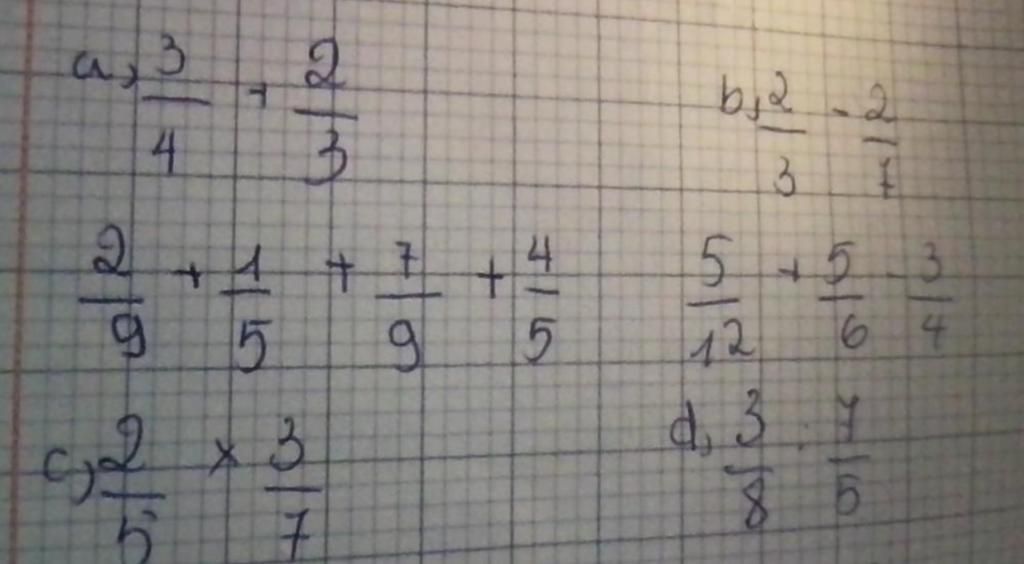 a, 3/4 + 2/3 b, 2/3 - 2/7
2/9 + 1/5 + 7/9 + 4/5 5/12 + 5/6 - 3/4
c, 2/5 x 3/7 d, 3/8 : 7/5